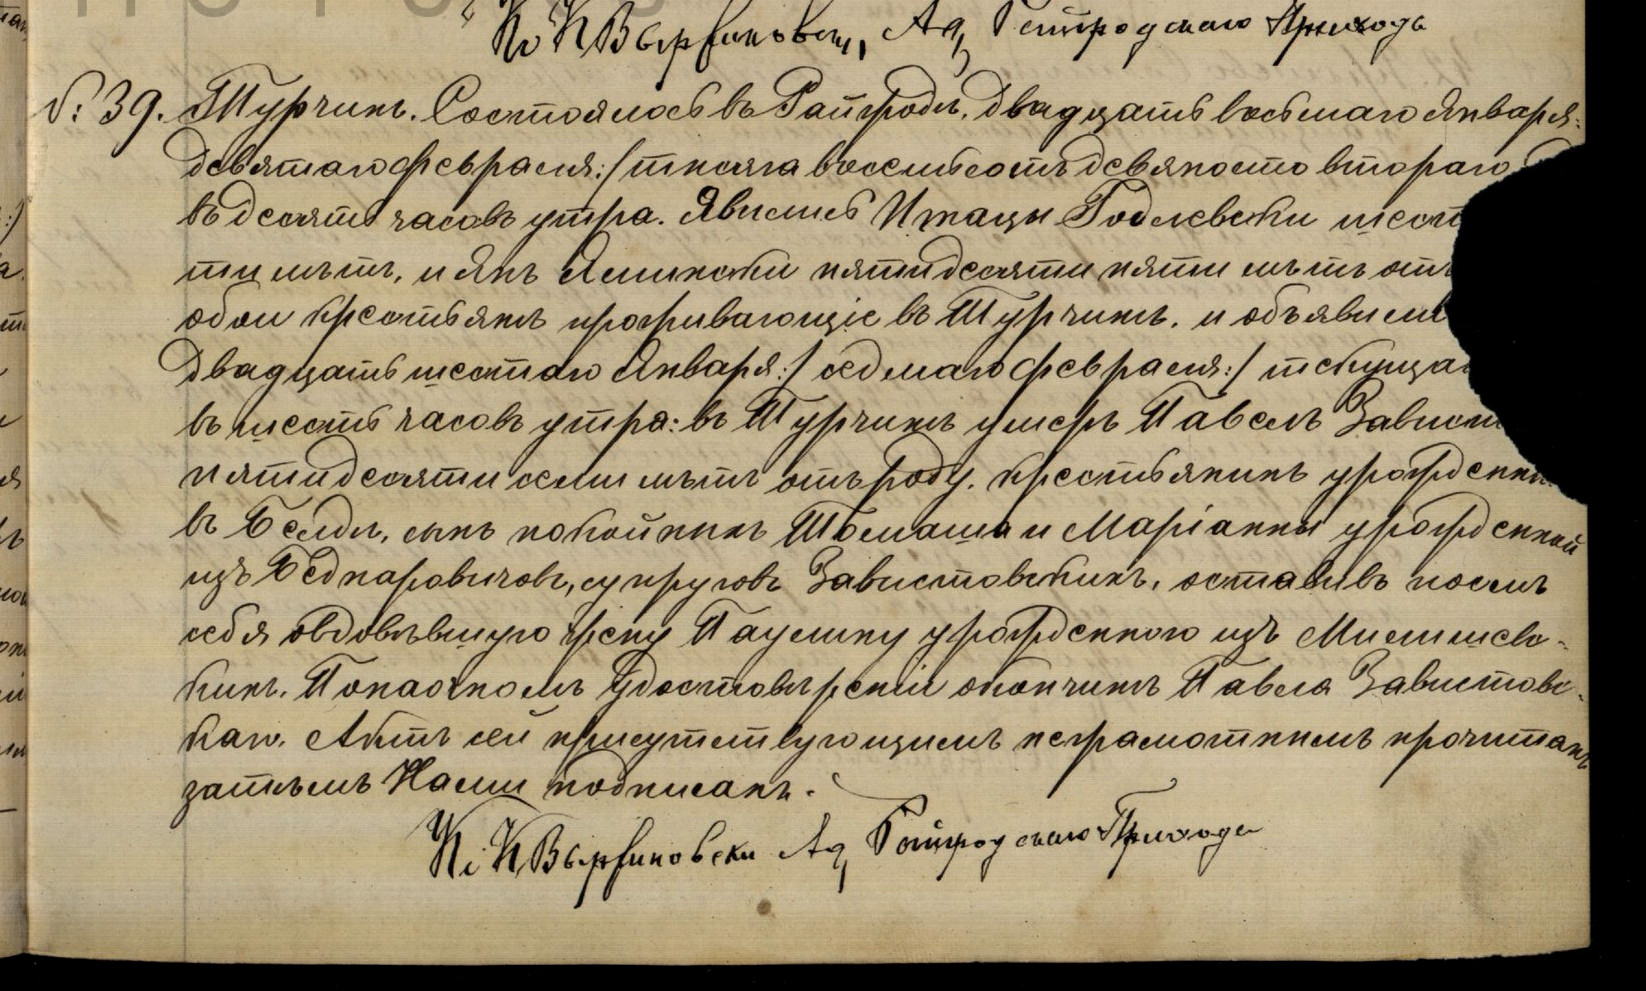 Кс КВержиковски, Ад. Райгродскаго Прихода
№: 39. Турчинъ. Состоялось въ Райгродѣ, двадцать восьмаго Января:
девятаго февраля:/ тысяча восемьсотъ девяносто втораго
въ десять часовъ утра. Явились Игнацы Годлевски шест
ти лѣтъ, и Янъ Ялински пятидесяти пяти лѣтъ отъ
обои крестьяне проживающіе въ Турчинѣ, и объявили
двадцать шестаго Января:/ седмаго февраля:/ текуща
въ шесть часовъ утра: въ Турчинѣ умеръ Павелъ Завист
пятидесяти семи лѣтъ отъ роду, крестьянинъ урожденны
въ Белдѣ, сынъ покойныхъ Томаша и Маріанны урожденной
изъ Беднаровичовъ, супруговъ Завистовскихъ, оставивъ послѣ
себя овдовѣвшую жену Паулину урожденною изъ Милишев-
кихъ. По настномъ удостовѣреніи окончинѣ Павла Завистовс-
каго. Актъ сей присутствующимъ неграмотнимъ прочитанъ
затѣмъ Нами подписанъ.
Кс КВержиковски Ад Райгродскаго Прихода